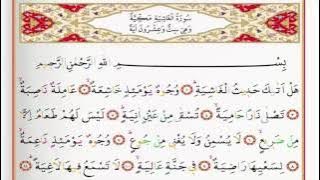 سُورَةُ الْغَاشِيَةِ مَكِّيَّةٌ
وَهِيَ سِتٌّ وَعِشْرُونَ اٰيَةً
بِسْمِ اللّٰهِ الرَّحْمٰنِ الرَّحِيمِ
هَلْ اَتٰيكَ حَدِيثُ الْغَاشِيَةِ ﴿١﴾ وُجُوهٌ يَوْمَئِذٍ خَاشِعَةٌ ﴿٢﴾ عَامِلَةٌ نَاصِبَةٌ ﴿٣﴾
تَصْلٰى نَارًا حَامِيَةً ﴿٤﴾ تُسْقٰى مِنْ عَيْنٍ اٰنِيَةٍ ﴿٥﴾ لَيْسَ لَهُمْ طَعَامٌ اِلَّا
مِنْ ضَرِيعٍ ﴿٦﴾ لَا يُسْمِنُ وَلَا يُغْنِي مِنْ جُوعٍ ﴿٧﴾ وُجُوهٌ يَوْمَئِذٍ نَاعِمَةٌ ﴿٨﴾
لِسَعْيِهَا رَاضِيَةٌ ﴿٩﴾ فِي جَنَّةٍ عَالِيَةٍ ﴿١٠﴾ لَا تَسْمَعُ فِيهَا لَاغِيَةً ﴿١١﴾